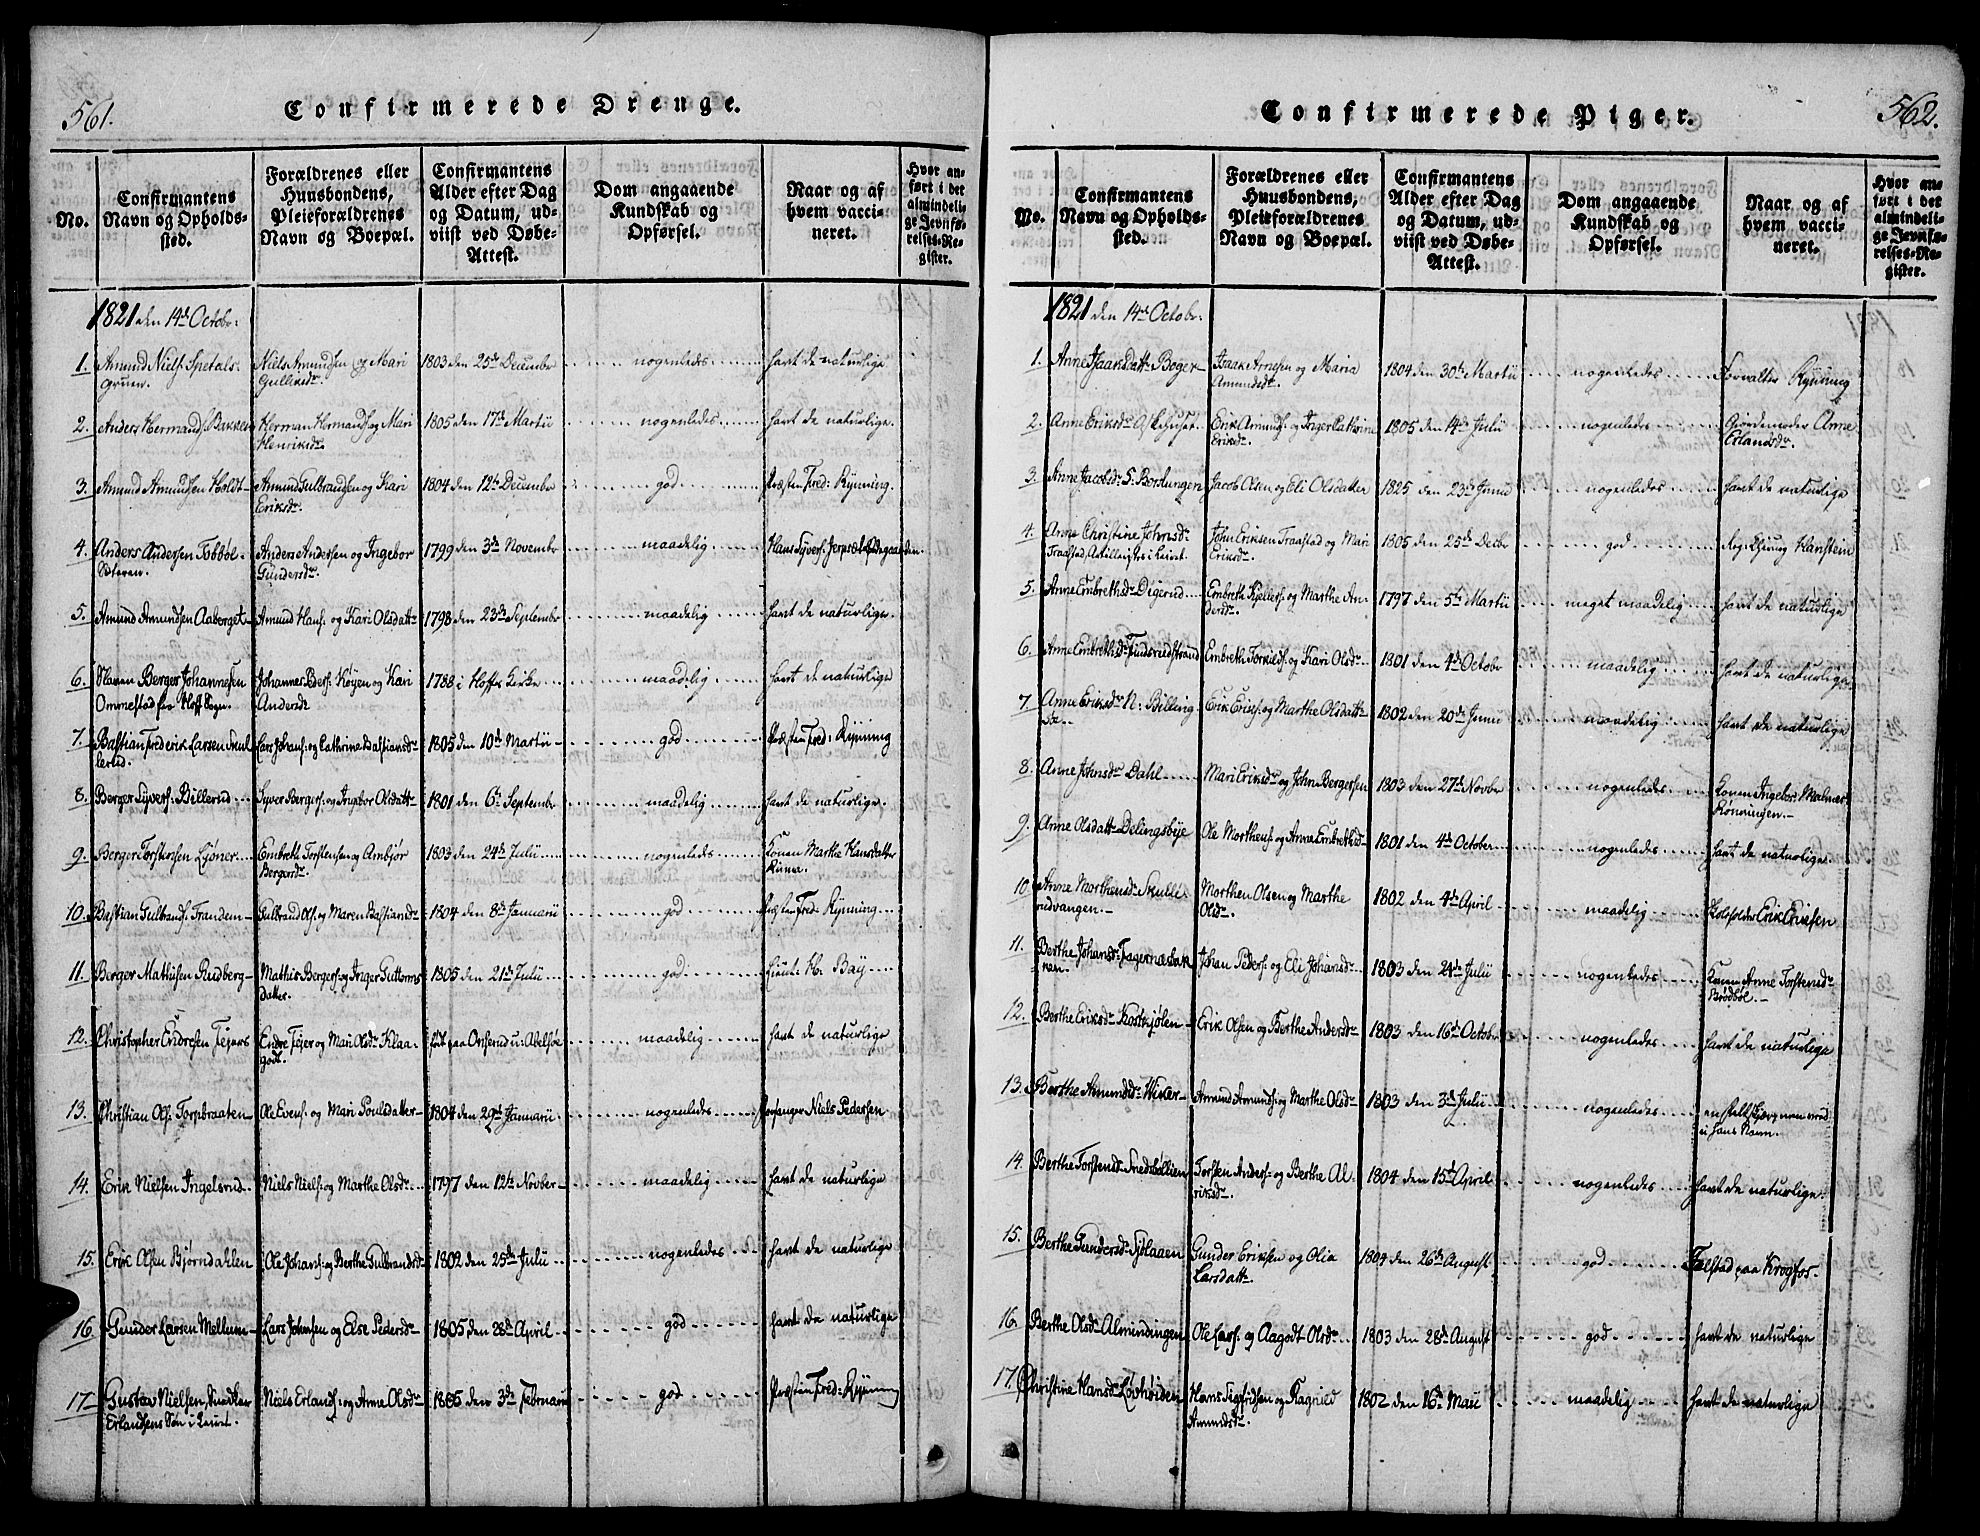 561.
Confirmerede Drenge.
No.
Confirmantens
Navn og Opholds-
sted.
Forældrenes eller
Huusbondens,
Pleieforældrenes
Navn og Boepæl.
Confirmantens
Alder efter Dag
og Datum, ud-
viist ved Døbe-
Attest.
Dom angaaende
Kundskab og
Opførsel.
Naar og af
hvem vacci-
neret.
Hvor an-
ført i det
almindeli-
ge Jevnfø-
relses-Re-
gister.
1821 den 14de Octobr:
1. Amund Nielss. Spetals- Niels Amundsen og Mari 1803 den 25de December nogenledes havt de naturlige
gruen. Gulliksdr
2. Anders Hermands. Bakken Herman Hermands. og Mari 1805 den 17de Martii nogenledes havt de naturlige
Henriksdr.
3. Amund Amundsen Holdt Amund Gulbrandsen og Kari 1804 den 12te December god Præsten Fred: Rynning.
Eriksdr.
4. Anders Andersen Tobbøl- Anders Andersen og Ingebor 1799 den 3de Novembr maadelig Hans Syvers.
Gundersdr.
5. Amund Amundsen Aaberget Amund Hans. og Kari Olsdattr 1798 den 23de Septembr maadelig havt de naturlige.
6. Berger Johannesen Johannes Peders. Køyen og Kari 1788 i Hoffs Kirke maadelig havt de naturlige
Ommestad fra Hoff Sogn. Andersdr
7. Bastian Frederik Larsen Skul Lars Johans. og Cathrine Bastiansdr 1805 den 10de Martii god Præsten Fred: Rynning
lerud.
8. Berger Syvers. Billerud Syver Bergers. og Ingebor Olsdattr 1801 den 6te Septembr. maadelig havt de naturlige.
9. Berger Torstensen Lyøner Embreth Torstensen og Ambjør 1803 den 24de Julii nogenledes Konen Marthe Hansdatter
Bergersdr.
10. Bastian Gulbrands. Trandem Gulbrand Ols. og Maren Bastiansdr 1804 den 8de Januarii god Præsten Fred: Rynning
11. Berger Mathisen Rudberg Mathis Bergers. og Inger Guttorms 1805 den 21de Julii god Lieut: H. Bay
datter.
12. Christopher Endresen Fejers Endre Fejer og Mari Olsdr Klaa- født paa Onserud u: Abelsøe maadelig havt de naturlige
god.
13. Christian Ols. Torpbraaten Ole Evens. og Mari Poulsdatter 1804 den 29de Januarii nogenledes Forsanger Niels Pedersen
14. Erik Nielsen Ingelsrud Niels Niels. og Marthe Olsdr. 1797 den 12te Novber maadelig havt de naturlige
15. Erik Olsen Bjørndahlen Ole Johans. og Berthe Gulbrandsdr 1802 den 25de Julii nogenledes havt de naturlige
16. Gunder Larsen Mellum Lars Johnsen og Else Pedersdr 1805 den 28de April god havt de naturlige
17. Gustav Nielsen, Snedker Niels Erlands. og Anne Olsdr 1805 den 3de Februarii god Præsten Fred: Rynning
Erlandsens Søn i Qvint.
562.
Confirmerede Piger.
No.
Confirmantens
Navn og Opholds-
sted.
Forældrenes eller
Huusbondens,
Pleieforældrenes
Navn og Boepæl.
Confirmantens
Alder efter Dag
og Datum, ud-
viist ved Døbe-
Attest.
Dom angaaende
Kundskab og
Opførsel.
Naar og af
hvem vacci-
neret.
Hvor an-
ført i det
almindeli-
ge Jevnfø-
relses-Re-
gister.
1821 den 14de Octobr.
1. Anne Isaarsdattr Boger Isaak Arnesen og Maria 1804 den 30te Martii nogenledes Forvalter Rynning
Amundsdr.
2. Anne Eriksdr Erik Amunds. og Inger Cathrine 1805 den 14de Julii nogenledes Gjordemoder Anne
Eriksdr. Erlandsdr.
3. Anne Jacobsdr S: Borstungen Jacob Olsen og Eli Olsdatter 1825 den 23de Junii nogenledes havt de naturlige
4. Anne Christine Johnsdr John Eriksen Traastad og Mari 1805 den 25de Decbr god Reg: Chirurg Hanstein
Traastad, Artillerists i Qvint. Eriksdr.
5. Anne Embrethsdr Digerud Embreth Kjellers. og Marthe An- 1797 den 5te Martii meget maadelig havt de naturlige
dersdr.
6. Anne Embrethsdr Findsrudstrand Embreth Torkilds. og Kari Olsdr. 1801 den 4de Octobr maadelig havt de naturlige
7. Anne Eriksdr N: Billing Erik Eriks. og Marthe Olsdattr 1802 den 20de Junii maadelig havt de naturlige
8. Anne Johnsdr Dahl Mari Eriksdr og John Bergersen 1803 den 27de Novbr nogenledes Konen Ingebor Malmer
Rønningen.
9. Anne Olsdattr Delingsbye Ole Morthens. og Anne Embrethsdr 1801 den 4de October nogenledes havt de naturlige.
10 Anne Morthensdr Skulle- Morthen Olsen og Marthe 1802 den 4de April maadelig Skoleholder Erik Eriksen
rudvangen. Olsdr.
11. Berthe Johansdr Fagernæsbak Johan Peders. og Eli Johansdr 1803 den 24de Julii nogenledes Konen Anne Torstensdr
ken. Brødbøl.
12. Berthe Eriksdr Kostkjølen Erik Olsen og Berthe Andersdr 1803 den 16de Octobr nogenledes havt de naturlige
13. Berthe Amundsdr Wiker Amund Amunds. og Marthe Olsdr 1803 den 3de Julii nogenledes
14. Berthe Torstensdr Snedsbøllien Torsten Anders. og Berthe Al- 1804 den 15de April nogenledes havt de naturlige.
15. Berthe Gundersdr Sjølaaen Gunder Eriksen og Olia 1804 den 26de August god Falstad paa Krogfos
Larsdattr.
16. Berthe Olsdr Almindingen Ole Lars. og Aagodt Olsdr 1803 den 28de August god havt de naturlige
17. Christine Hansdr Lövhöiden Hans Sigfridsen og Ragnild 1802 den 16de Maii maadelig havt de naturlige
Amundsdr.